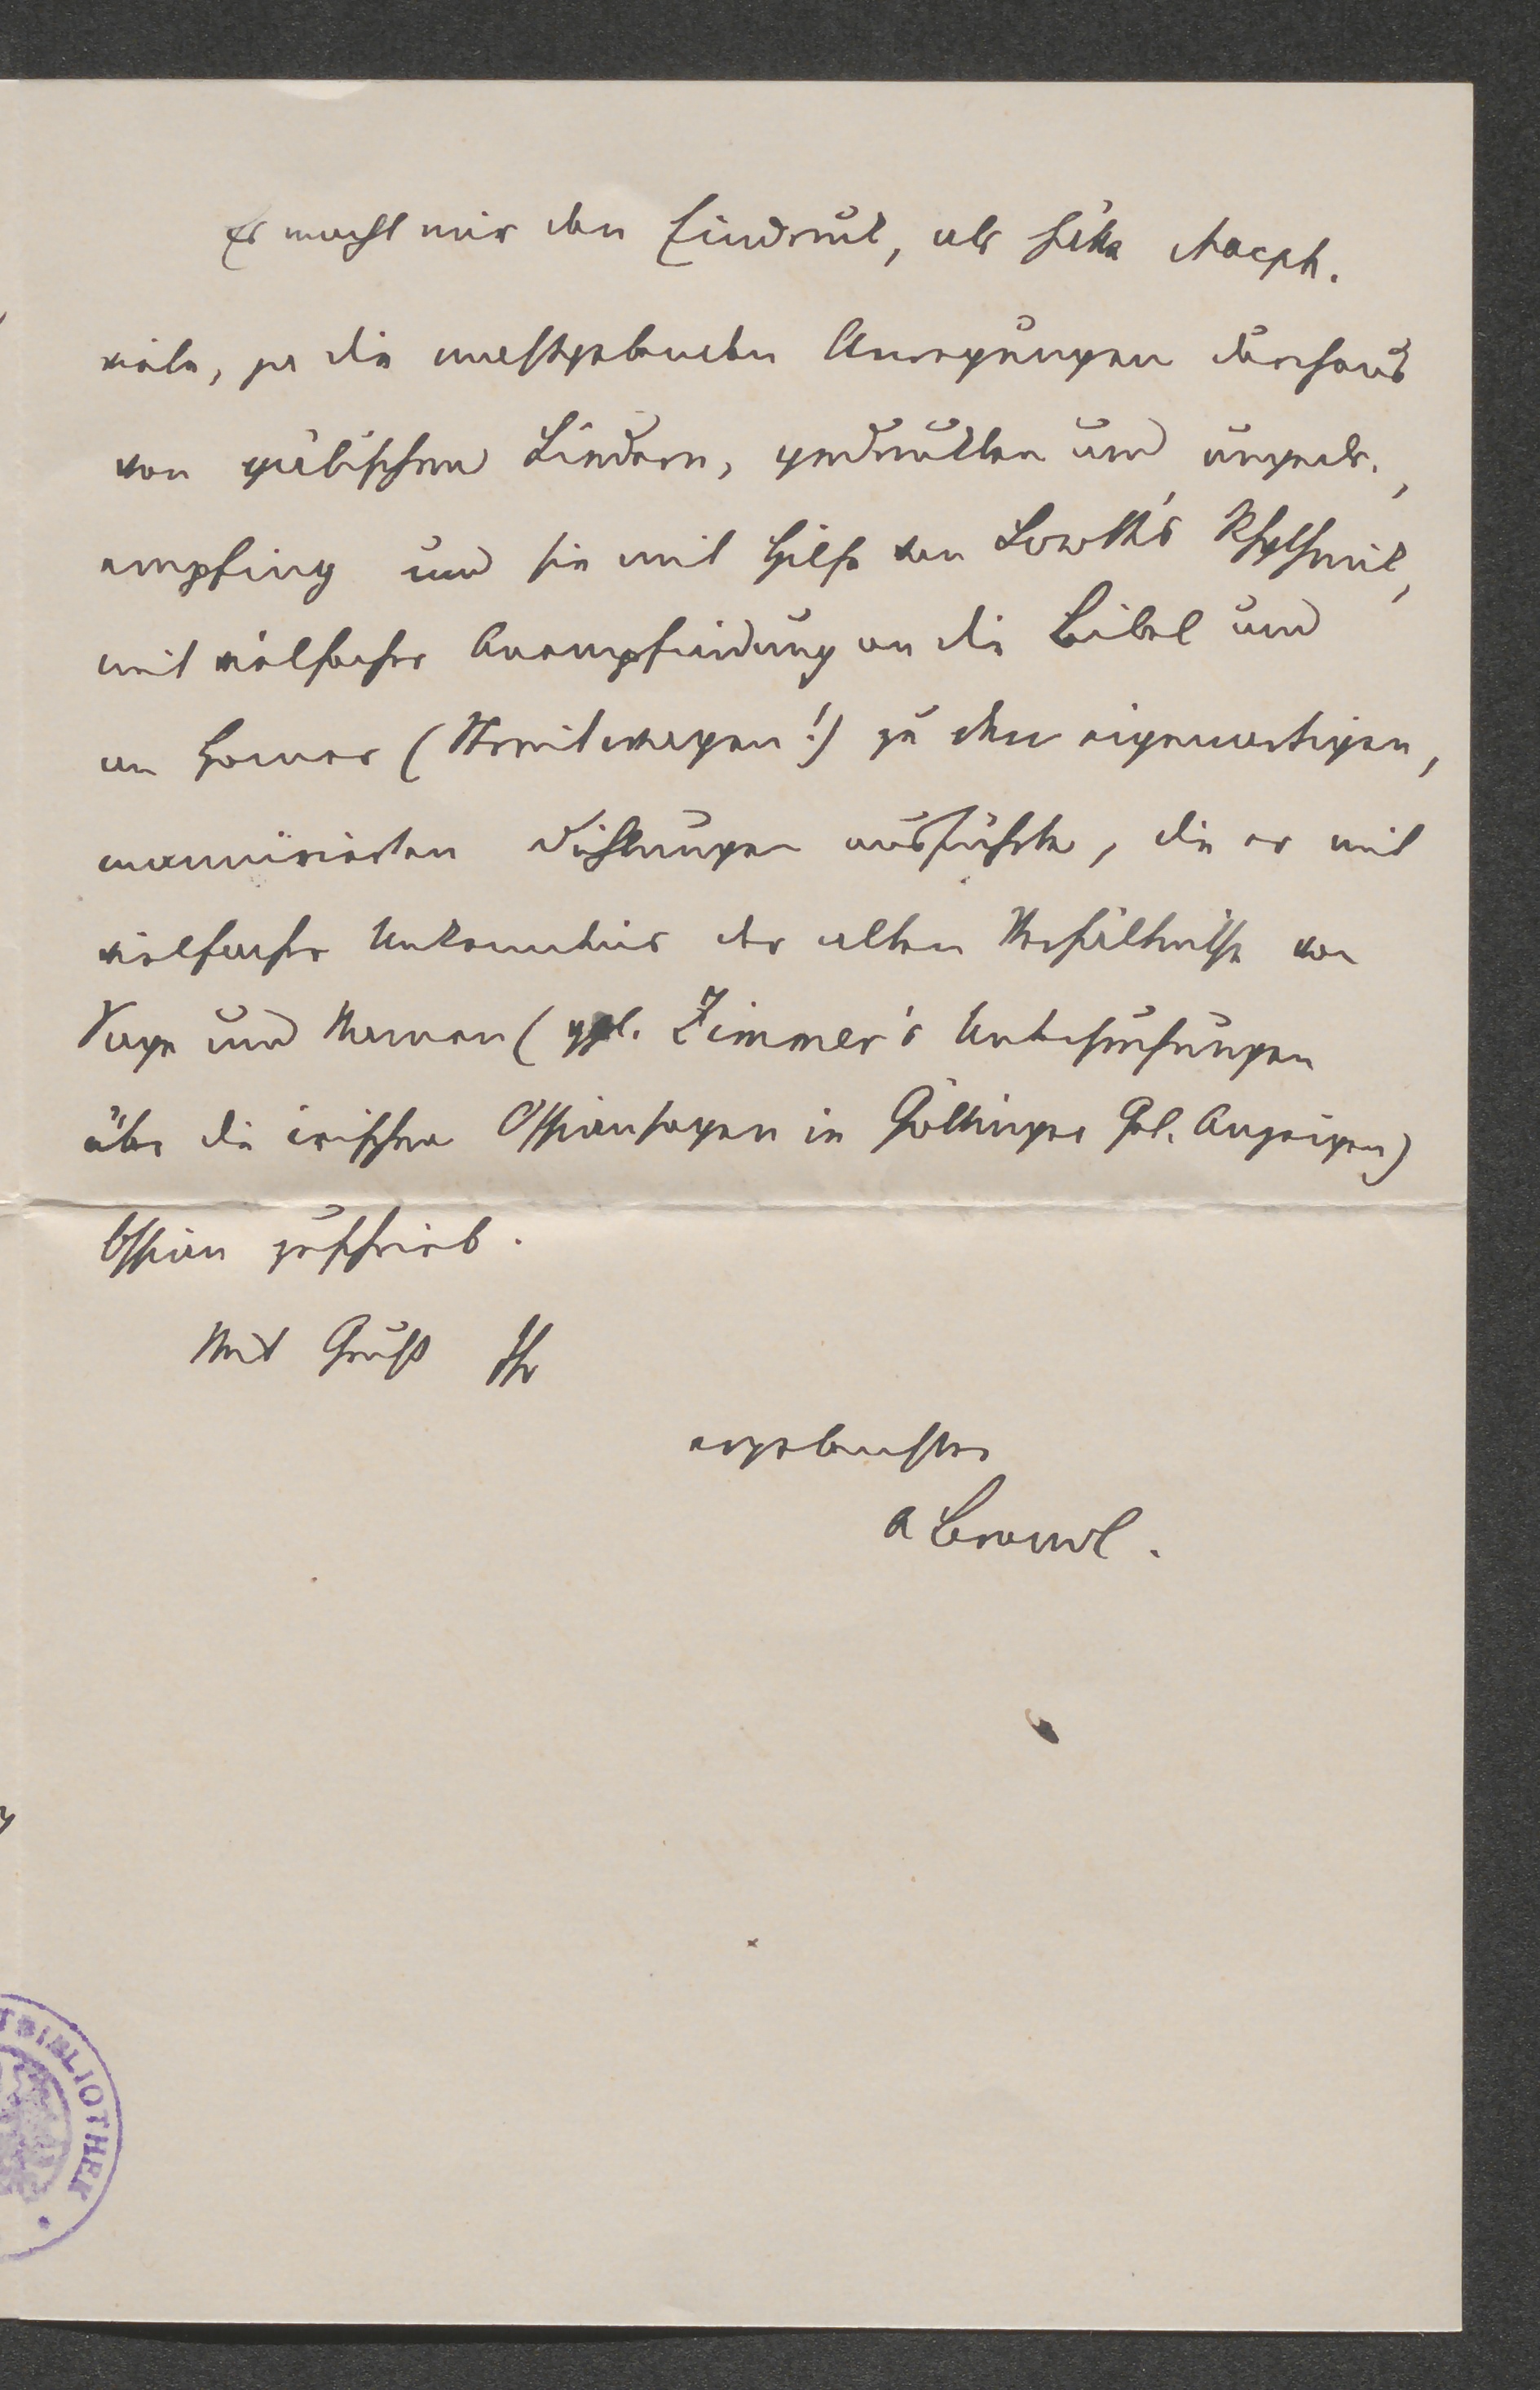 Es macht mir den Eindruck, als hätte Macph.
viele, ja die maßgebenden Anregungen durchaus
von gälischen Liedern, gedruckten und ungedr.,
empfing und sie mit Hilfe von Lowth's Rhythmik,
mit vielfacher Anempfindung an die Bibel und
an Homer (Streitwagen!) zu den eigenartigen,
manirierten Dichtungen ausführte, die er mit
vielfacher Unkenntnis der alten Verhältnisse von
Sage und Namen (vgl. Zimmer's Untersuchungen
über die irischen Ossiansagen in Göttinger Gel. Anzeigen)
Ossian zuschrieb.
Mit Gruß Ihr
ergebenster
A Brandl.
TBIBLIOTHEK